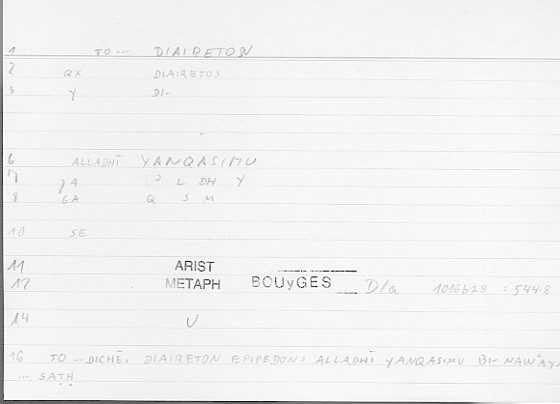 1 TO :- DIAIRETON
2 QX DIAIRETOS
3 Y DI-
6 ALLADHĪ YANQASIMU
7 L DH Y
8 6A Q S M
10 SE
11 ARIST
12 METAPH BOUyGES D/a 1016b28 : 544.8
14 U
16 TO - DICHĒI DIAIRETON EPIPEDON: ALLADHĪ YANQASIMU BI- NAWʿAY
... SAṬḤ